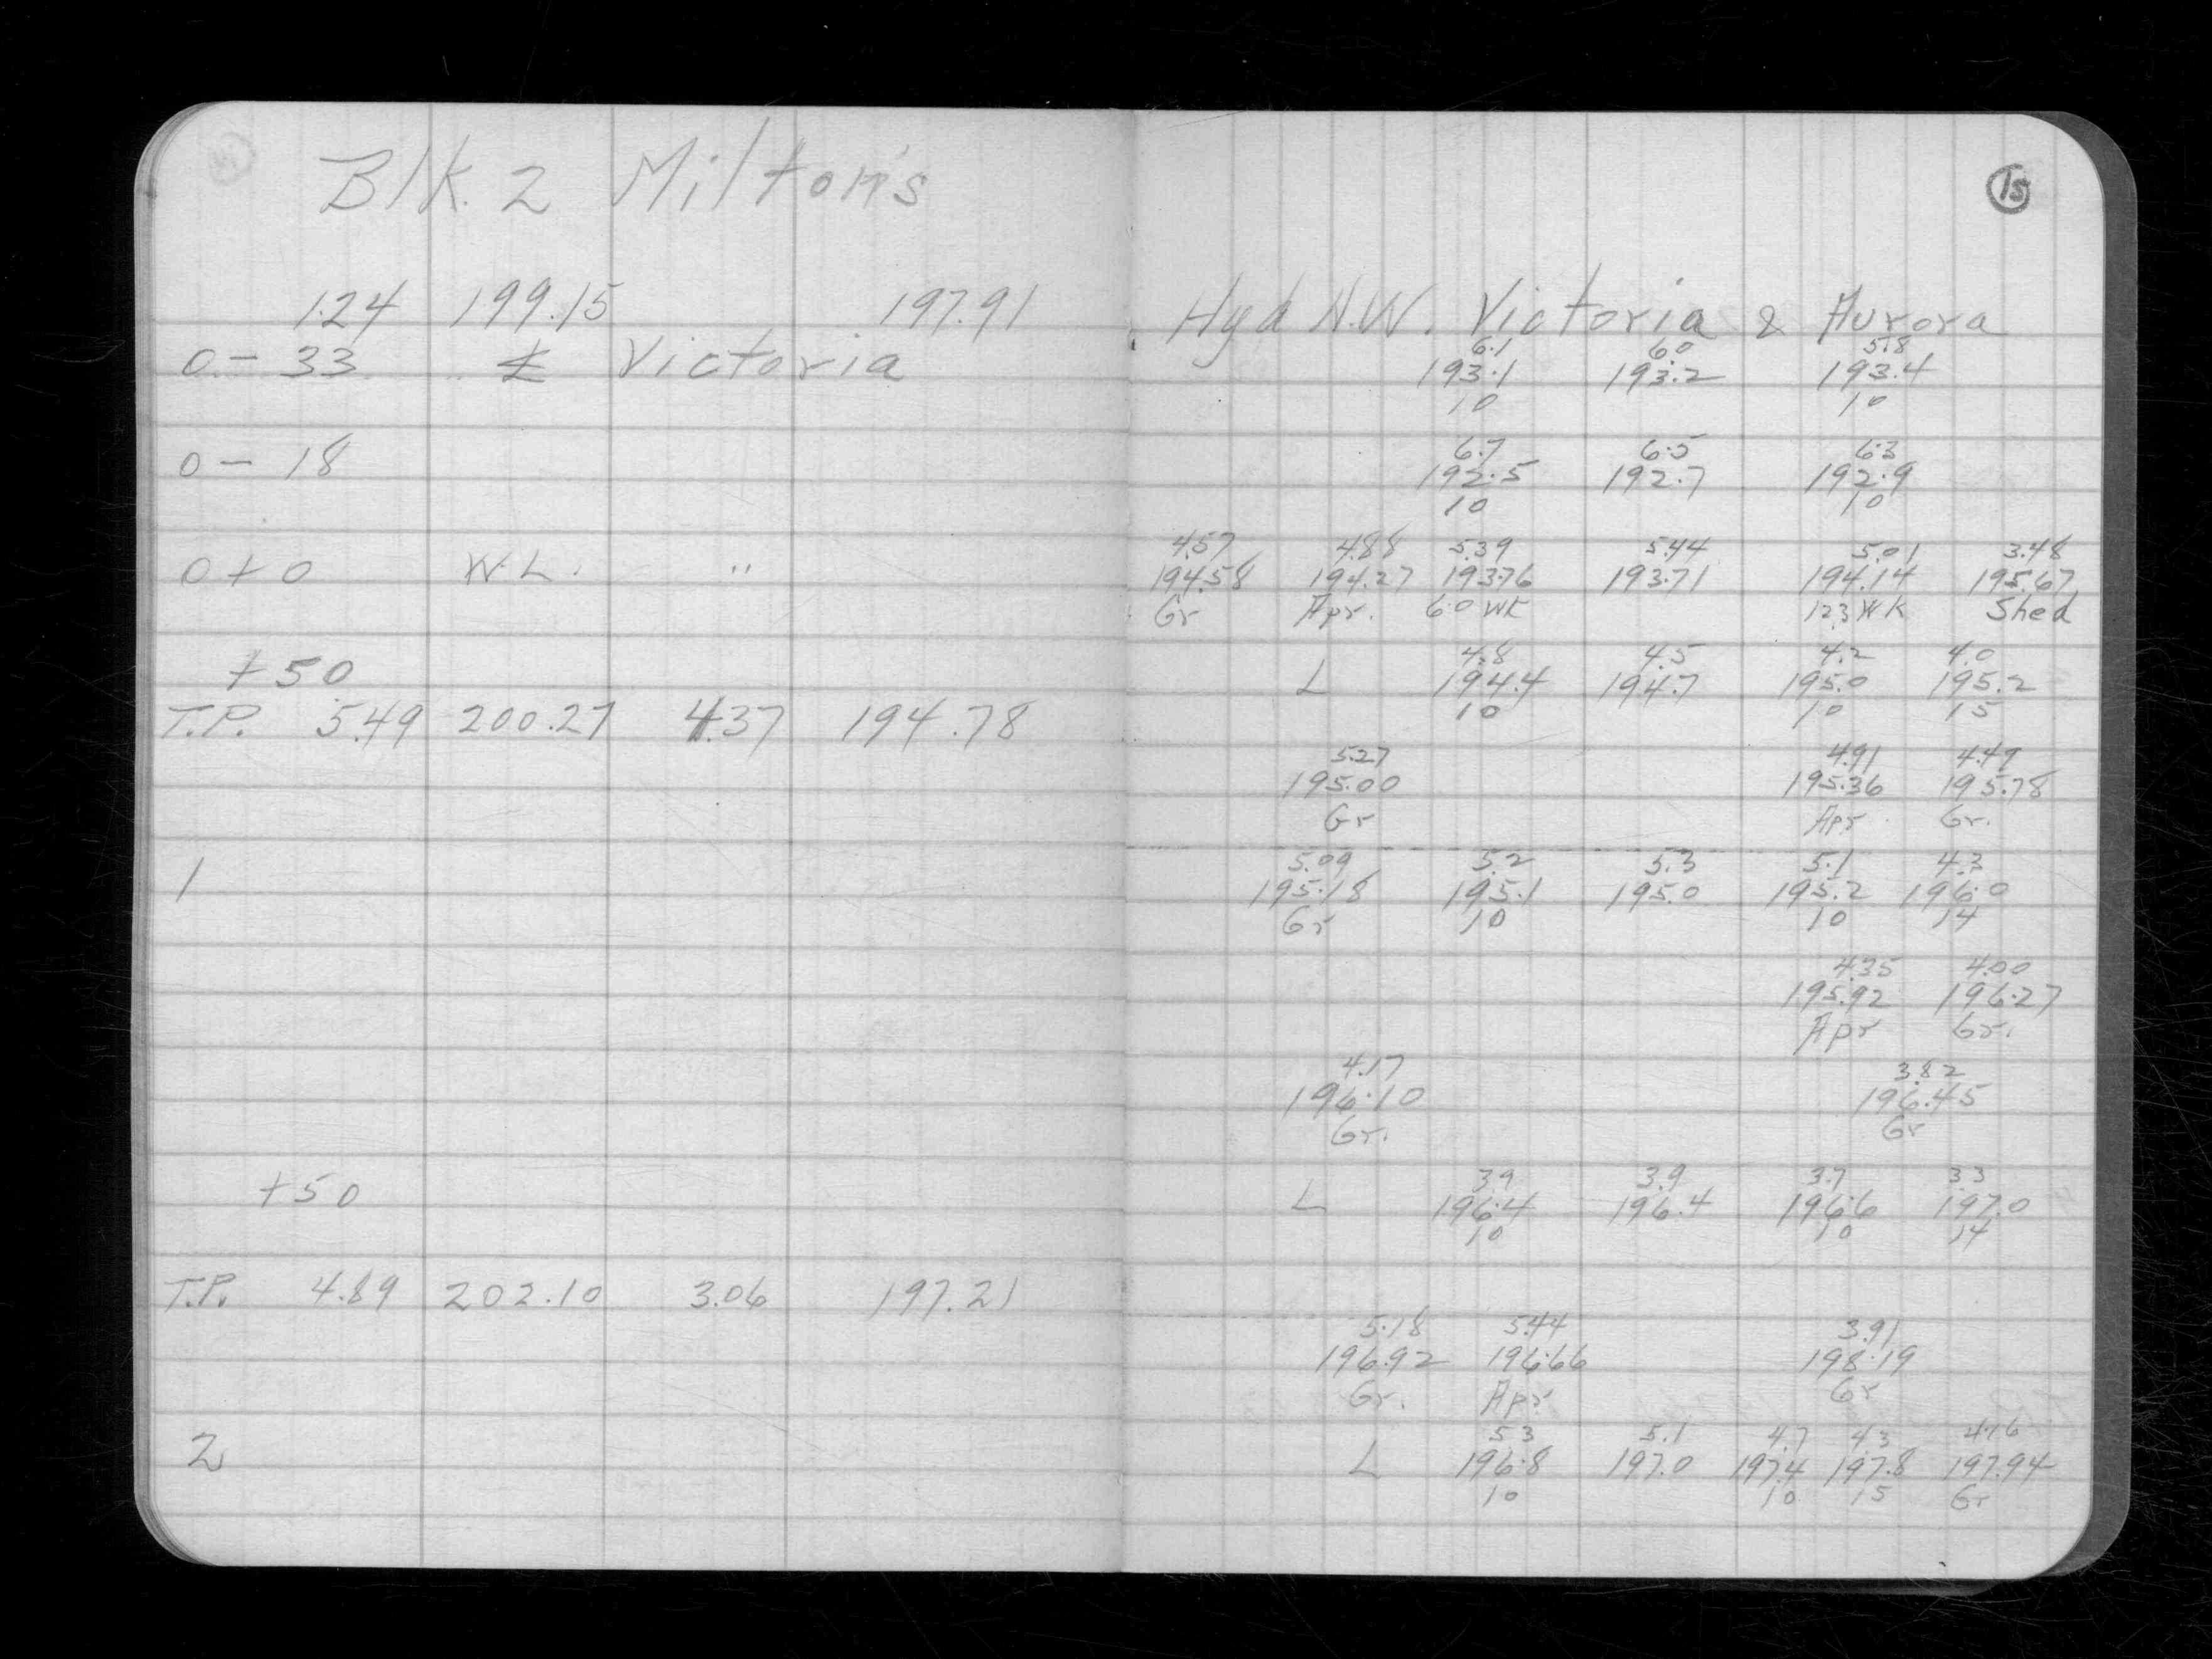 Blk. 2 Milton's
15
1.24 199.15 197.91 Hyd N.W. Victoria & Aurora
6.1 6.0 5.8
0 - 33 ℄ Victoria 193.1 193.2 193.4
10 10
6.7 6.5 6.3
0 - 18 192.5 192.7 192.9
10 10
4.57 4.88 5.39 5.44 5.01 3.48
0 + 0 W.L. " 194.58 194.27 193.76 193.71 194.14 195.67
Gr Apr. 6.0 WK 12.3 WK Shed
4.8 4.5 4.2 4.0
+50 L 194.4 194.7 195.0 195.2
10 10 15
T.P. 5.49 200.27 4.37 194.78
5.27 4.91 4.49
195.00 195.36 195.78
Gr Apr Gr.
5.09 5.2 5.3 5.1 4.3
1 195.18 195.1 195.0 195.2 196.0
Gr 10 10 14
4.35 4.00
195.92 196.27
Apr Gr.
4.17 3.82
196.10 196.45
Gr. Gr
3.9 3.9 3.7 3.3
+50 L 196.4 196.4 196.6 197.0
10 10 14
T.P. 4.89 202.10 3.06 197.21
5.18 5.44 3.91
196.92 196.66 198.19
Gr. Apr Gr
5.3 5.1 4.7 4.3 4.16
2 L 196.8 197.0 197.4 197.8 197.94
10 10 15 Gr